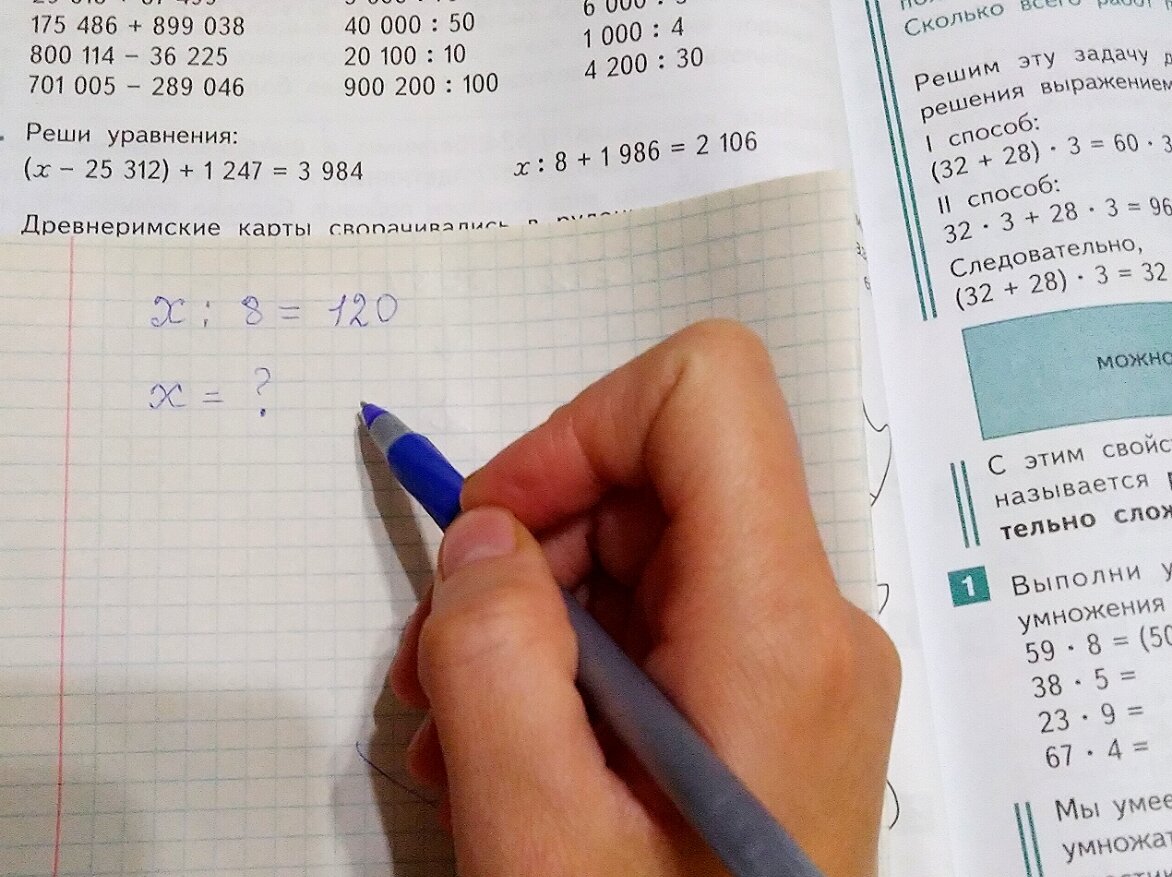 175 486 + 899 038
800 114 − 36 225
701 005 − 289 046
40 000 : 50
20 100 : 10
900 200 : 100
1 000 : 4
4 200 : 30
Реши уравнения:
(x − 25 312) + 1 247 = 3 984
x : 8 + 1 986 = 2 106
Древнеримские карты сворачивались в
x : 8 = 120
x = ?
Сколько всего
Решим эту задачу
решения выражением
I способ:
(32 + 28) · 3 = 60 · 3
II способ:
32 · 3 + 28 · 3 = 96
Следовательно,
(32 + 28) · 3 = 32
можно
С этим
называется
1 Выполни
умножения
59 · 8 = (50
38 · 5 =
23 · 9 =
67 · 4 =
Мы